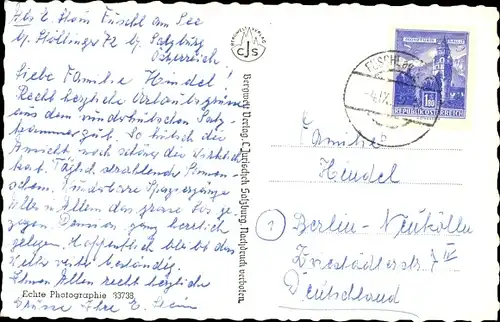 Abs. E. Stein Fuschl am See
b/ Stöllinger 72 b/ Salzburg
Österreich
Liebe Familie Hindel!
Recht herzliche Urlaubsgrüsse
aus dem wunderhübschen Salz-
kammergut. So hübsch die
Ansicht, noch schöner die Wirklich-
keit. Täglich strahlender Sonnen-
schein. Wunderbare Spaziergänge
Alles in Allem das grosse Los ge-
zogen. Pension ganz herrlich
gelegen. Hoffentlich bleibt das
Wetter weiter beständig.
Ihnen Allen recht herzliche
Grüsse Ihre E. Stein
Echte Photographie 33738
CJS
Bergwelt Verlag, C. Jurischek, Salzburg, Nachdruck verboten.
FUSCHL
1.80
REPUBLIK ÖSTERREICH
Familie
Hindel
1
Berlin-Neukölln
7 IV
Deutschland